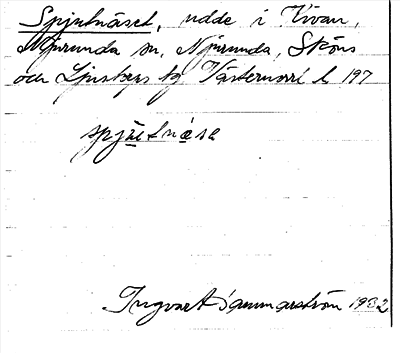 Spjutnäset, udde i Vivan,
Njurunda sn, Njurunda, Sköns
och Ljustorps tg Västernorrl. l. 197
spjʉ̄tnǟse
Ingvar Hammarström 1932